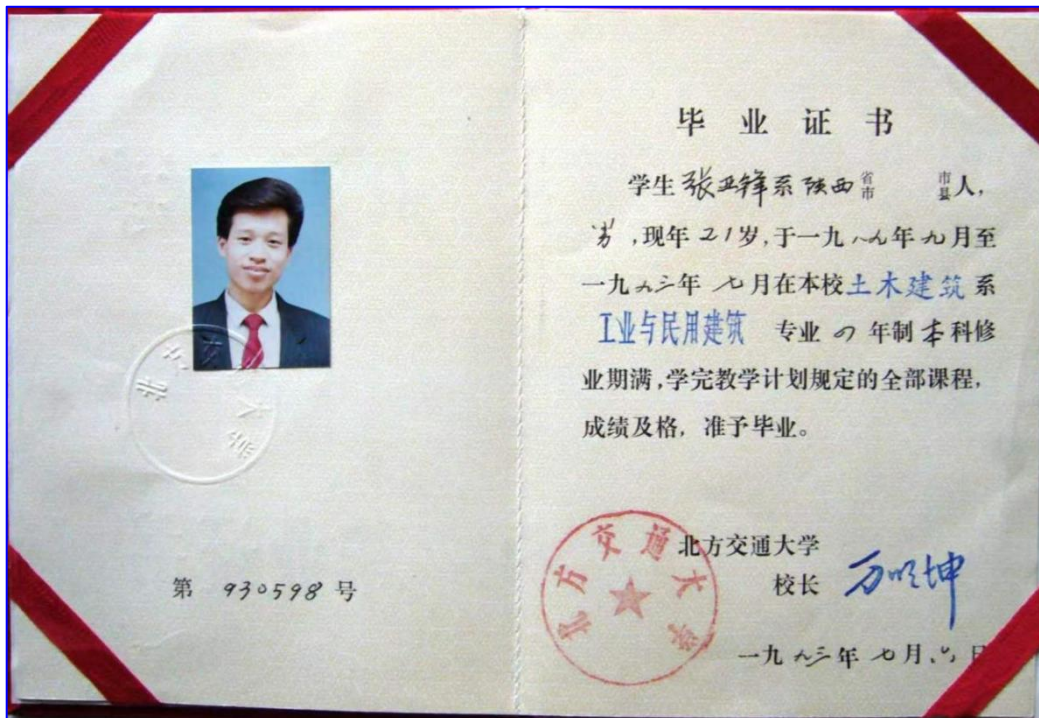 北方交通大学
第 930598 号
毕业证书
学生 张亚锋 系 陕西 省市 市县 人，
男，现年 21 岁，于一九八九年九月至
一九九三年 七月在本校 土木建筑 系
工业与民用建筑 专业 四 年制 本 科修
业期满，学完教学计划规定的全部课程，
成绩及格，准予毕业。
北方交通大学
北方交通大学
校长 万明坤
一九九三年 七月 日